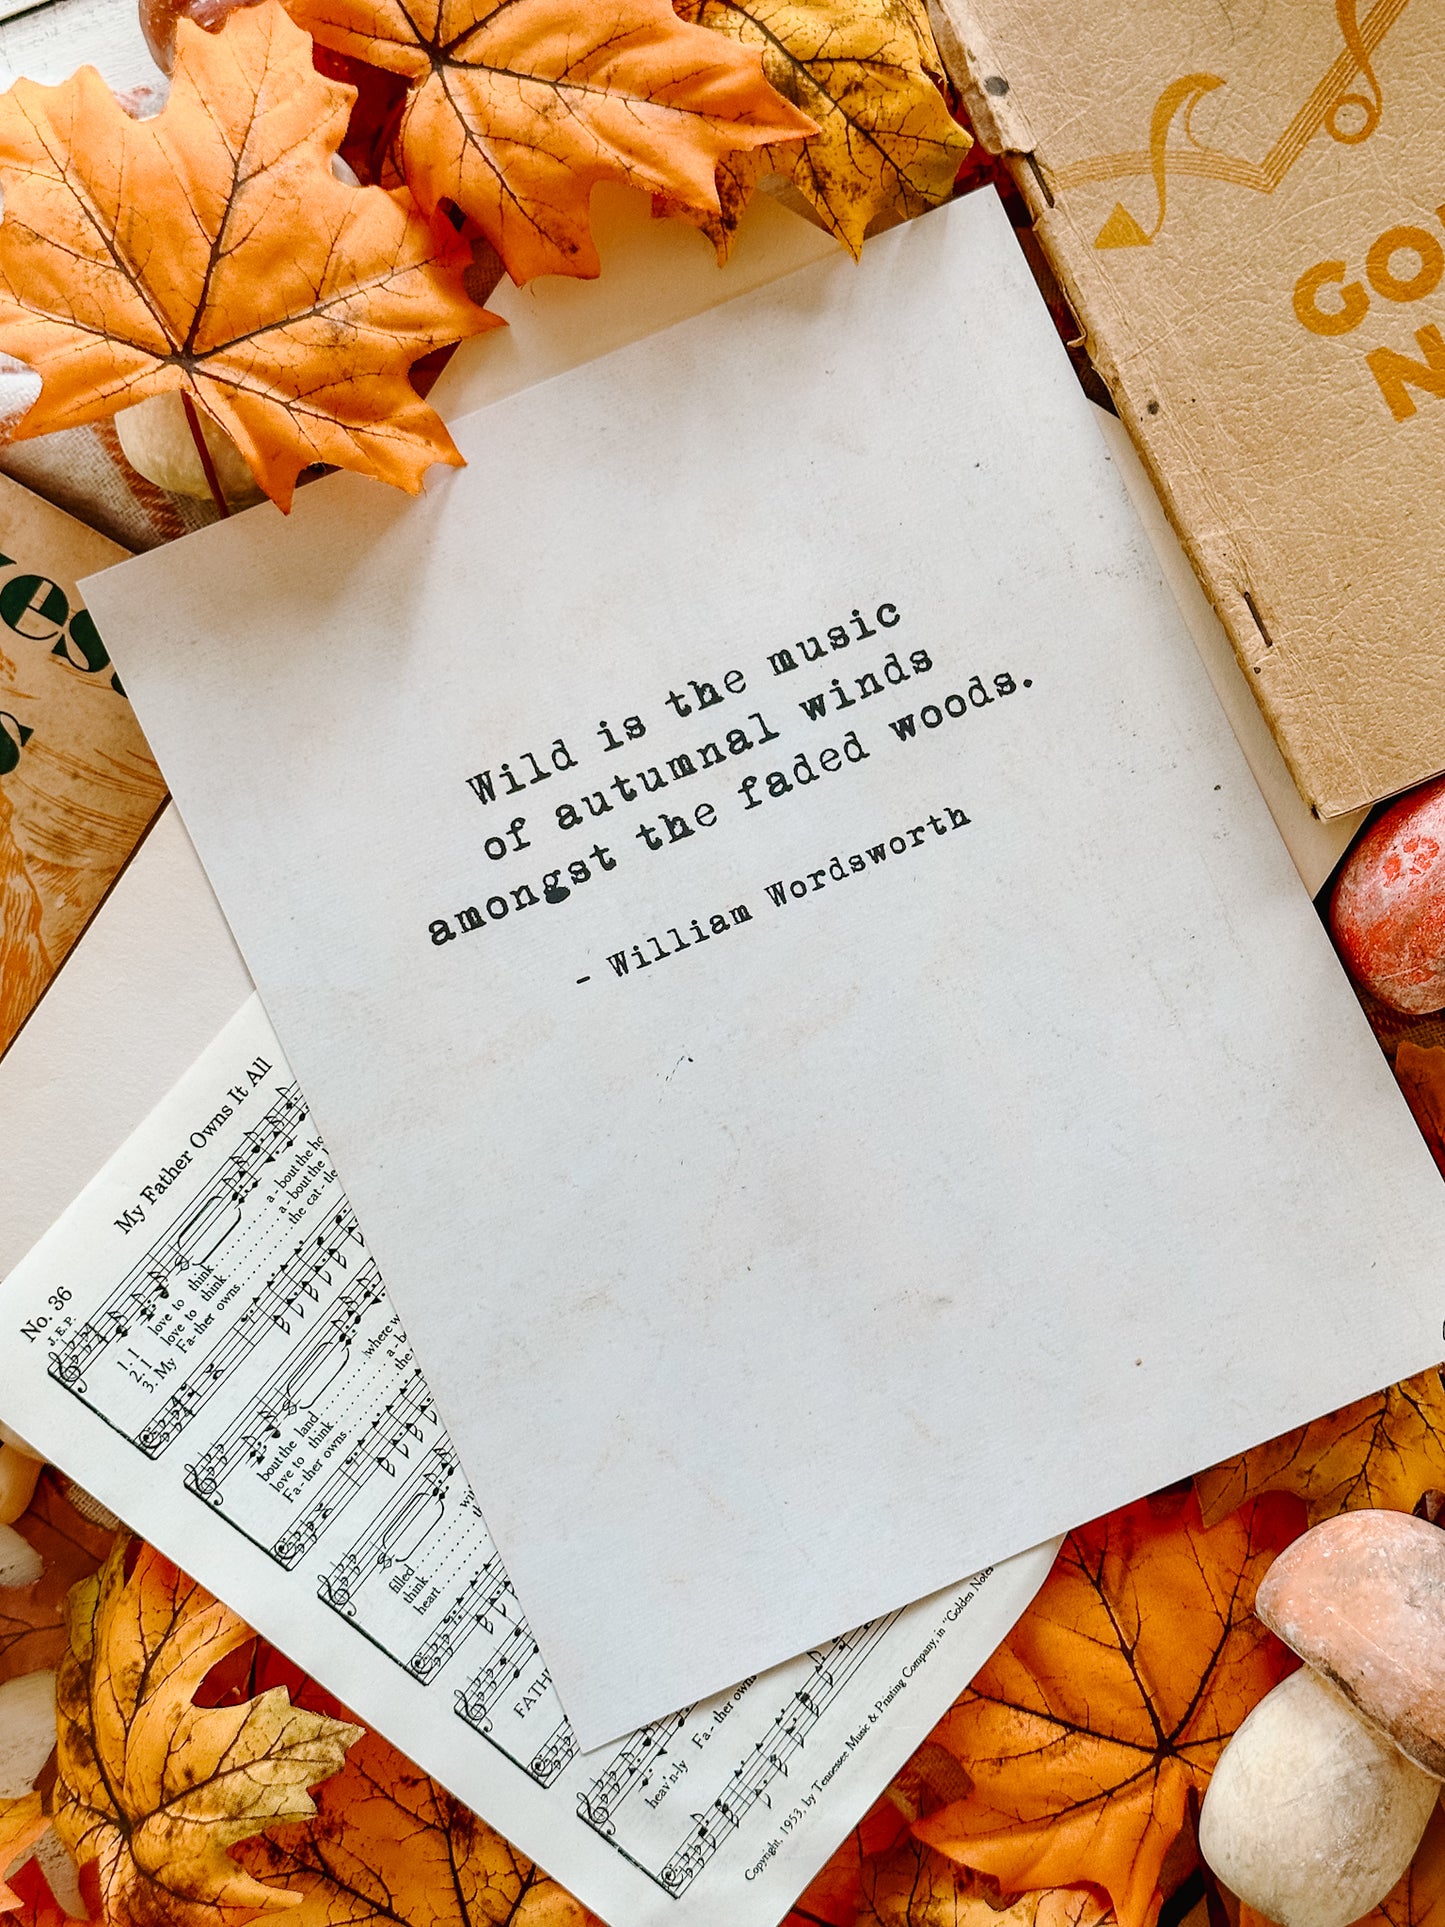 Wild is the music
of autumnal winds
amongst the faded woods.
- William Wordsworth
My Father Owns It All
No. 36
J. E. P.
1. I love to think a - bout the
2. I love to think a - bout the
3. My Fa- ther owns the cat - tle
bout the land where
love to think
Fa - ther owns the
filled
think
heart
heav'n-ly Fa - ther
Copyright, 1953, by Tennessee Music & Printing Company, in "Golden Notes